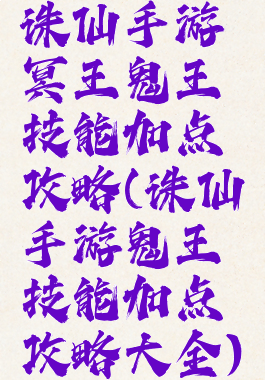 诛仙手游
冥王鬼王
技能加点
攻略(诛仙
手游鬼王
技能加点
攻略大全)